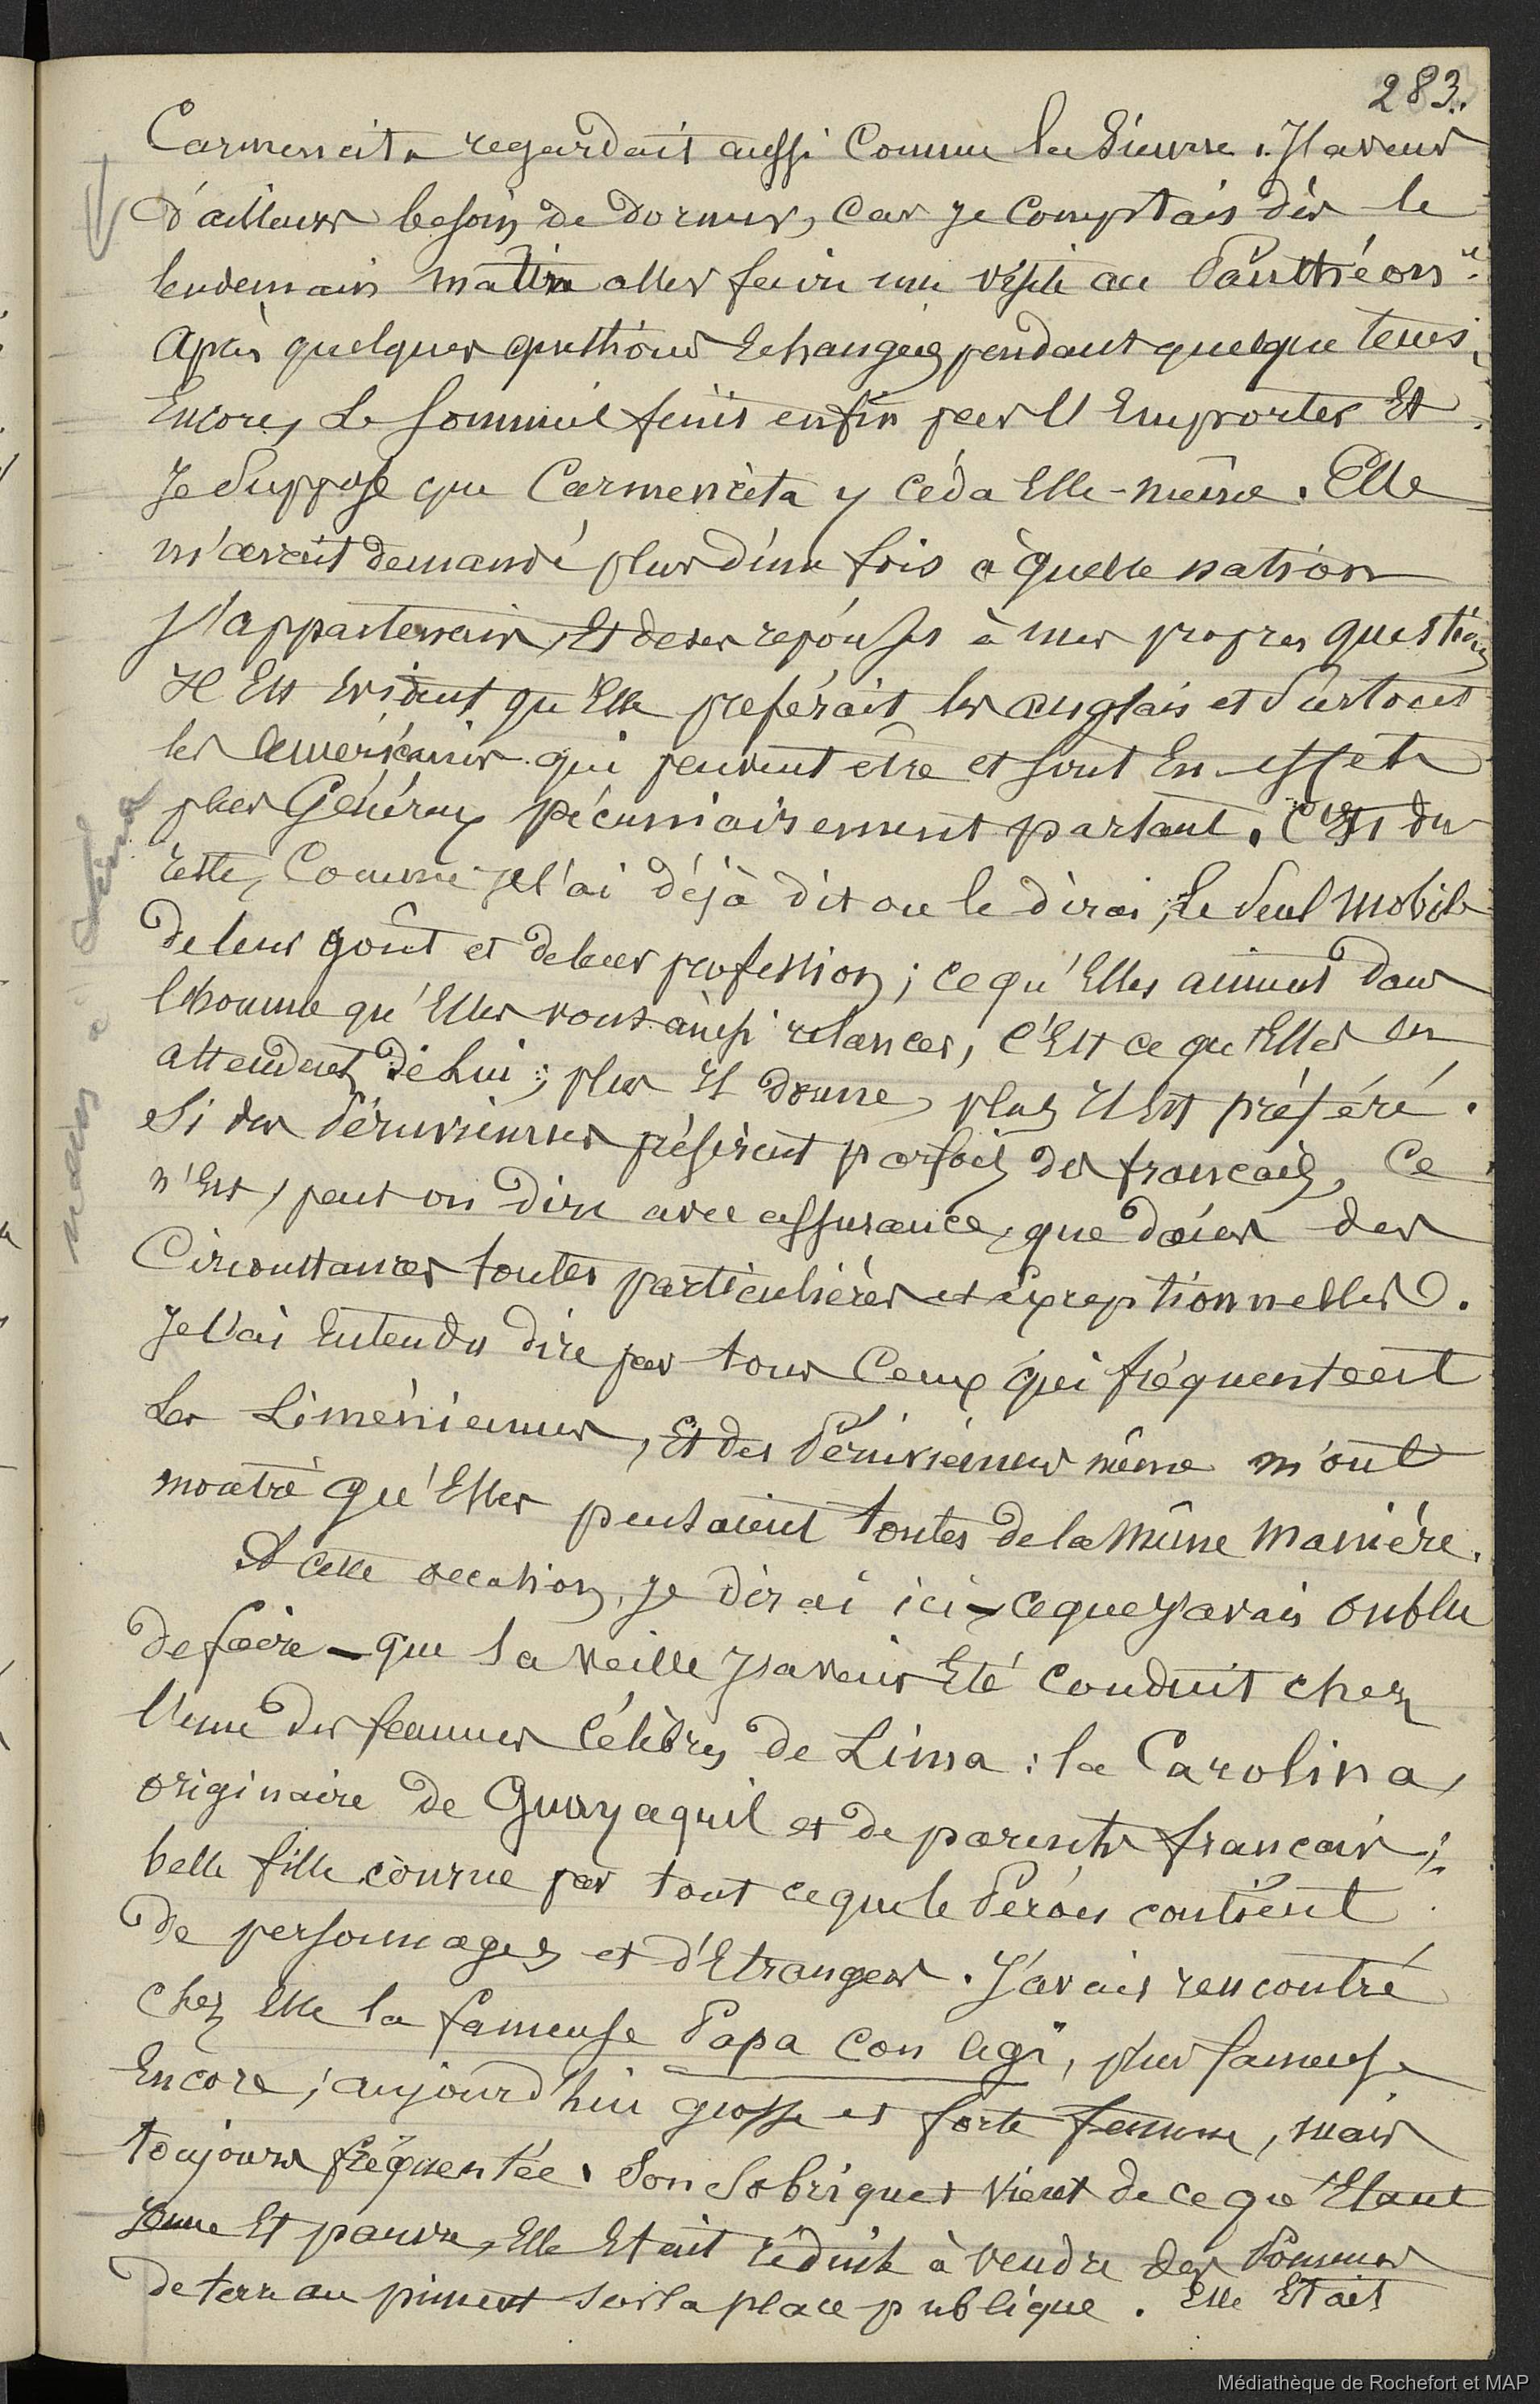 283.
Carmencita regardait aussi comme la sienne. J'avais
d'ailleurs besoin de dormir, car je comptais dès le
lendemain matin aller faire une visite au Panthéon".
Après quelques questions echangées pendant quelque tems
Encore, Le sommeil finit enfin par l'Emporter Et
Je suppose que Carmencita y céda Elle-même. Elle
m'avait demandé plus d'une fois à quelle nation
J'appartenais, Et de ses réponses à mes propres questions
Il Est Evident qu'Elle preférait les anglais et surtout
les américains qui peuvent être et sont En effet
plus Généreux pécuniairement parlant. C'est du
reste, Comme je l'ai déjà dit ou le dirai, le seul mobile
de leur goût et de leur profession; ce qu'Elles aiment dans
l'homme qu'Elles vont ainsi relancer, C'Est ce qu'Elles en
attendent de Lui; plus Il donne, plus Il Est préféré.
Si des Péruviennes préfèrent parfois des francais, Ce
n'Est, peut on dire avec assurance, que dans des
Circonstances toutes particulières et exceptionnelles.
Je l'ai Entendu dire par tous Ceux qui fréquentent
Les Liméniennes, Et des Péruviennes même m'ont
montré qu'Elles pensaient toutes de la Même Manière.
A cette occasion, je dirai ici - ce que j'avais oublié
de faire - que la veille J'avais Eté conduit chez
l'une des femmes Célèbres de Lima: la Carolina,
originaire de Guayaquil et de parents francais;
belle fille courue par tout ce que le Pérou contient
de personnages et d'Etrangers. J'avais rencontré
chez Elle la fameuse Papa con agi, plus fameuse
Encore; aujourd'hui grosse et forte femme, mais
toujours fréquentée. Son Sobriquet vient de ce qu'Etant
Jeune Et pauvre, Elle Etait réduite à vendre des Pommes
de terre au piment sur la place publique. Elle Etait
mais à
Médiathèque de Rochefort et MAP